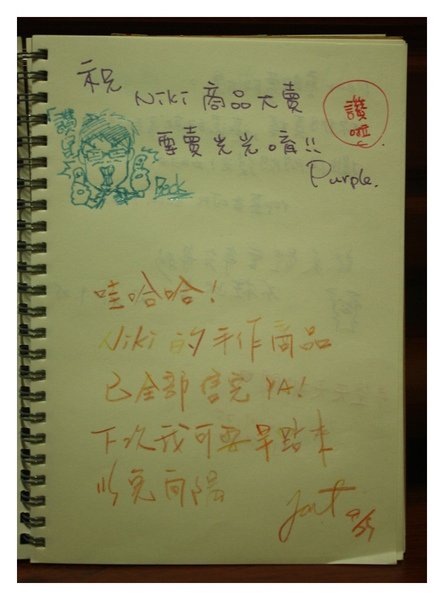 祝
Niki 商品大賣
要賣光光唷!!
Purple.
讚啦
讚
Rock
哇哈哈!
Niki 的手作商品
已全部售完 YA!
下次我可要早點來
以免向隅